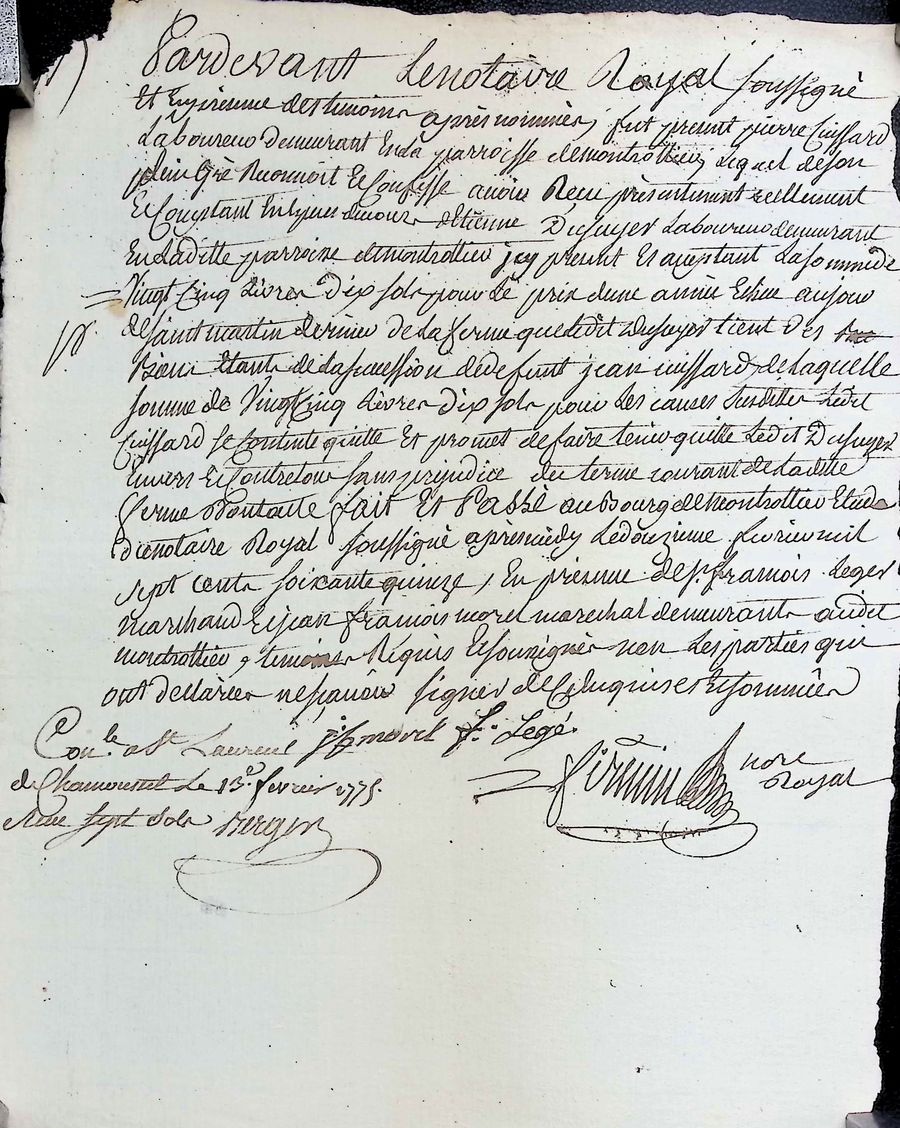 Pardevant Lenotaire Royal soussigné
Et En presence des temoins après nommés, fut present pierre Cuissard
Laboureur Demeurant En la parroisse de montrottier, Lequel de son
plein Gré Reconnoit & Confesse avoir Reçu présentement reellement
& Comptant En especes de cours d'Etienne Dusuyer Laboureur demeurant
En Laditte parroisse de montrottier jcy present Et aceptant La somme de
Vingt Cinq Livres Dix sols pour Le prix d'une année Echue au jour
de saint martin dernier de La ferme que Ledit Dusuyer tient des
Biens Etants de La succession de defunt jean Cuissard, de Laquelle
somme de Vingt Cinq Livres Dix sols pour Les causes susdittes Ledit
Cuissard se Contente quitte Et promet de faire tenir quitte Ledit Dusuyer
Envers & Contre tous sans prejudice du terme courant de Laditte
ferme Dont acte fait Et Passé au Bourg de montrottier Etude
du notaire Royal soussigné après midy Le Douzieme fevrier mil
sept cents soixante quinze, En presence de Sr. francois Leger
marchand & jean francois morel marechal demeurants audit
montrottier, temoins Requis & soussignés non Les parties qui
ont declarées ne sçavoir signer de Ce Enquises & sommées
j. f. morel fs. Legé.
Con.le a St Laurent
de Chamousset Le 13e. fevrier 1775.
Reçu sept sols Berger
nore
Royal